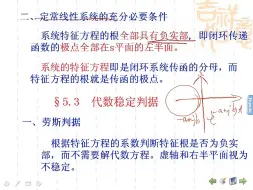 二、定常线性系统的充分必要条件
系统特征方程的根全部具有负实部，即闭环传递
函数的极点全部在s平面的左半面。
系统的特征方程即是闭环系统传函的分母，而
特征方程的根就是传函的极点。
§5.3 代数稳定判据
一、劳斯判据
根据特征方程的系数判断特征根是否为负实
部，而不需要解代数方程。虚轴和右半平面视为
不稳定。